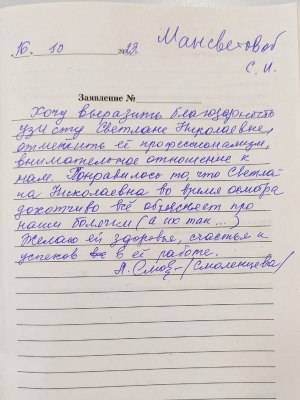 „16" 10 2023г.
Мансветовой
С. И.
Заявление №
Хочу выразить благодарность
УЗИсту Светлане Николаевне,
отметить её профессионализм,
внимательное отношение к
нам. Понравилось то, что Светла-
на Николаевна во время осмотра
доходчиво всё объясняет про
наши болячки (а их так...)
Желаю ей здоровья, счастья и
успехов в её работе.
/Смоленцева/